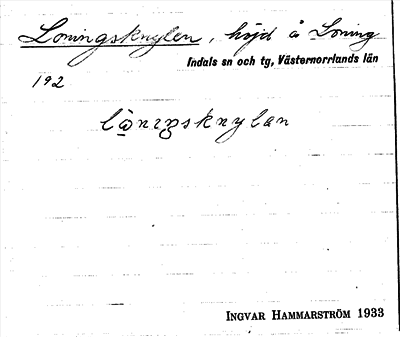 Loningsknylen, höjd å Loning
Indals sn och tg, Västernorrlands län
192
lòniŋsknylan
INGVAR HAMMARSTRÖM 1933